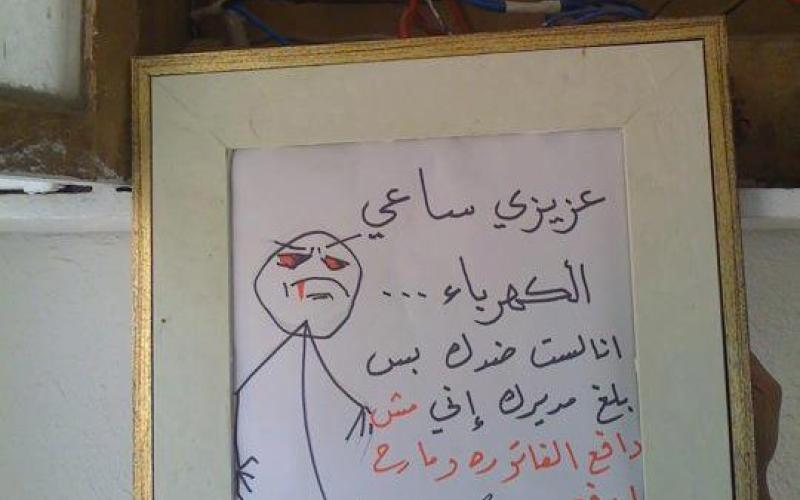 عزيزي ساعي
ألكهرباء ...
انا لست ضدك بس
بلغ مديرك إني مش
دافع الفاتوره ومارح